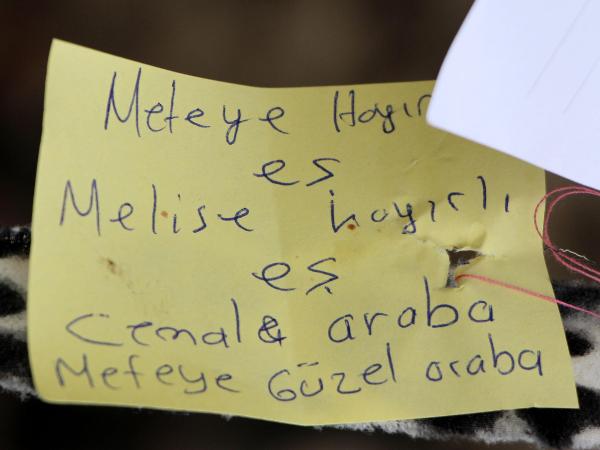 Meteye Hayır
eş
Melise hayırlı
eş
Cemale araba
Meteye Güzel araba